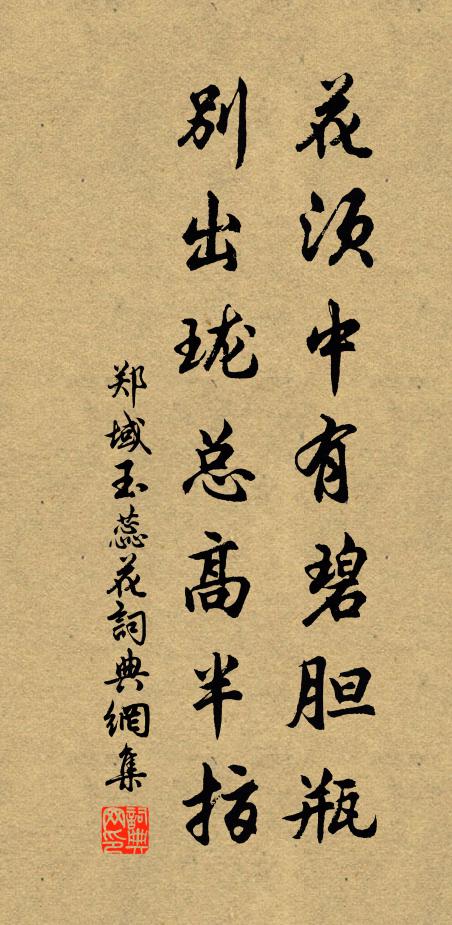 花须中有碧胆瓶
别出珑总高半指
郑域玉蕊花詞典網集
詞典網印